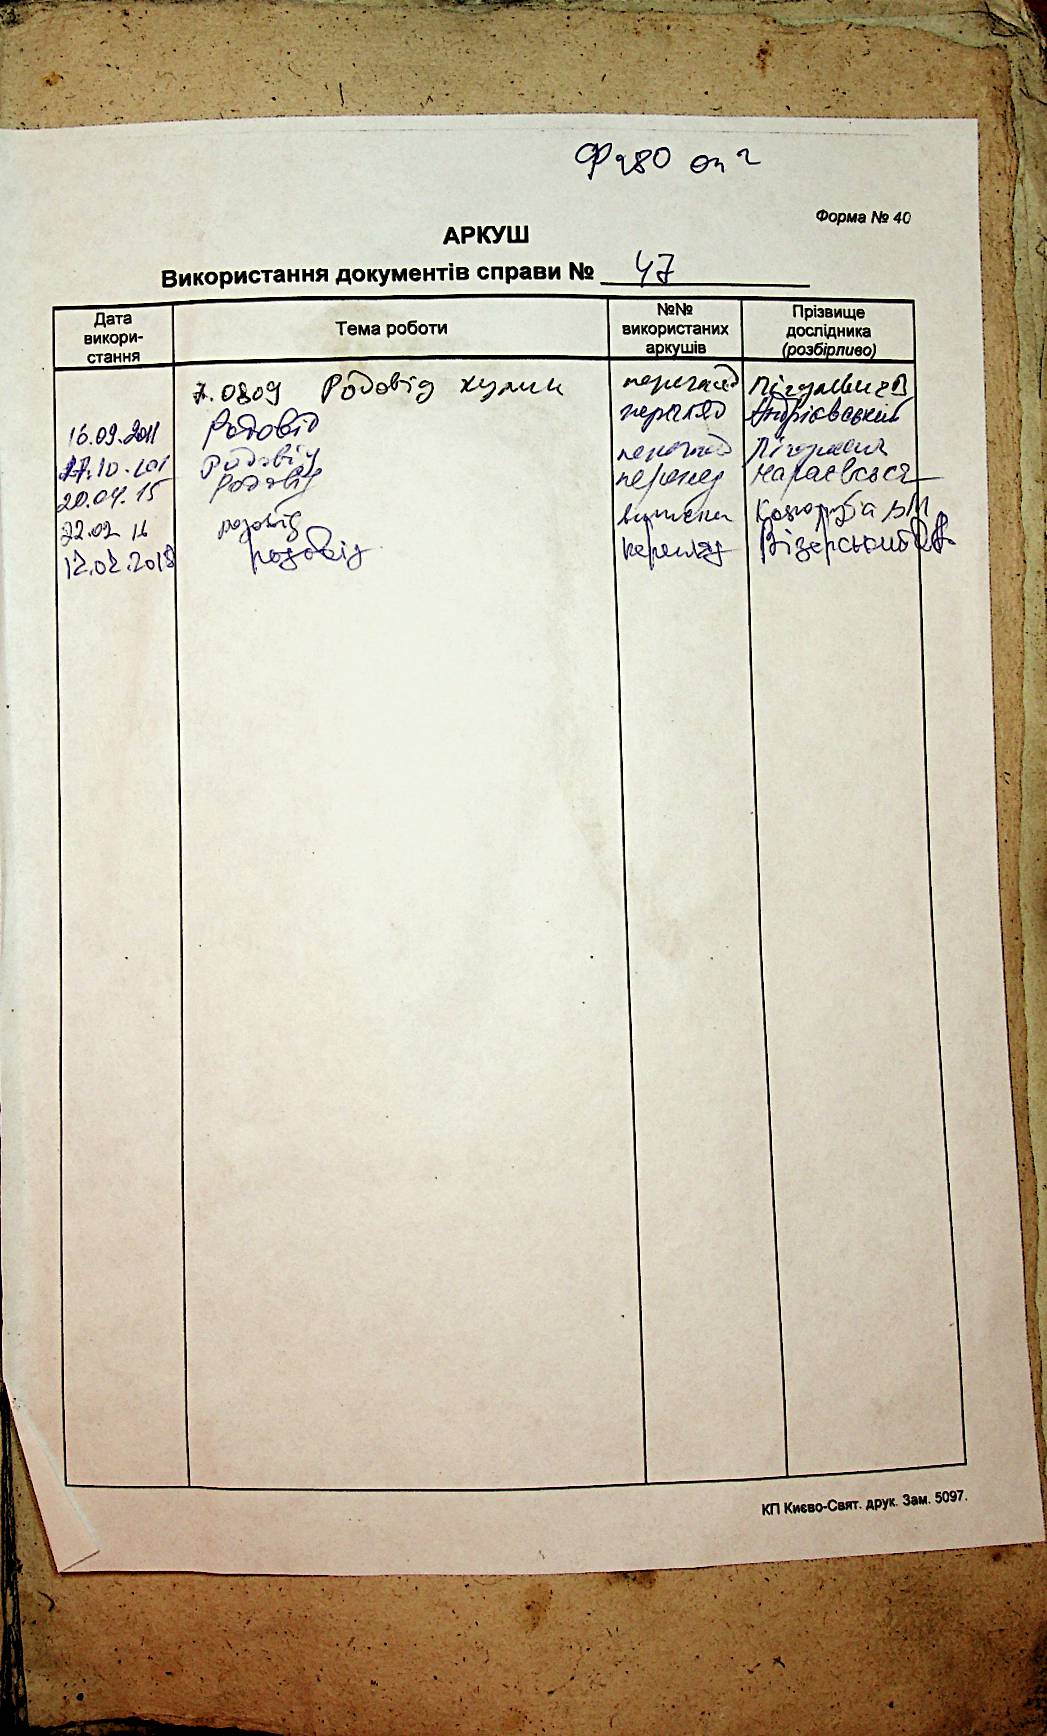 Ф 280 оп 2
Форма № 40
АРКУШ
Використання документів справи № 47
Дата викори-стання Тема роботи №№ використаних аркушів Прізвище дослідника (розбірливо)
7.0809 Родовід перегляд
16.09.2011 Родовід перегляд Андрієвський
Родовід перегляд
20.04.15 Родовід перегляд
22.02 16 родовід виписки
12.02.2018 родовід перегляд Візерський
КП Києво-Свят. друк. Зам. 5097.